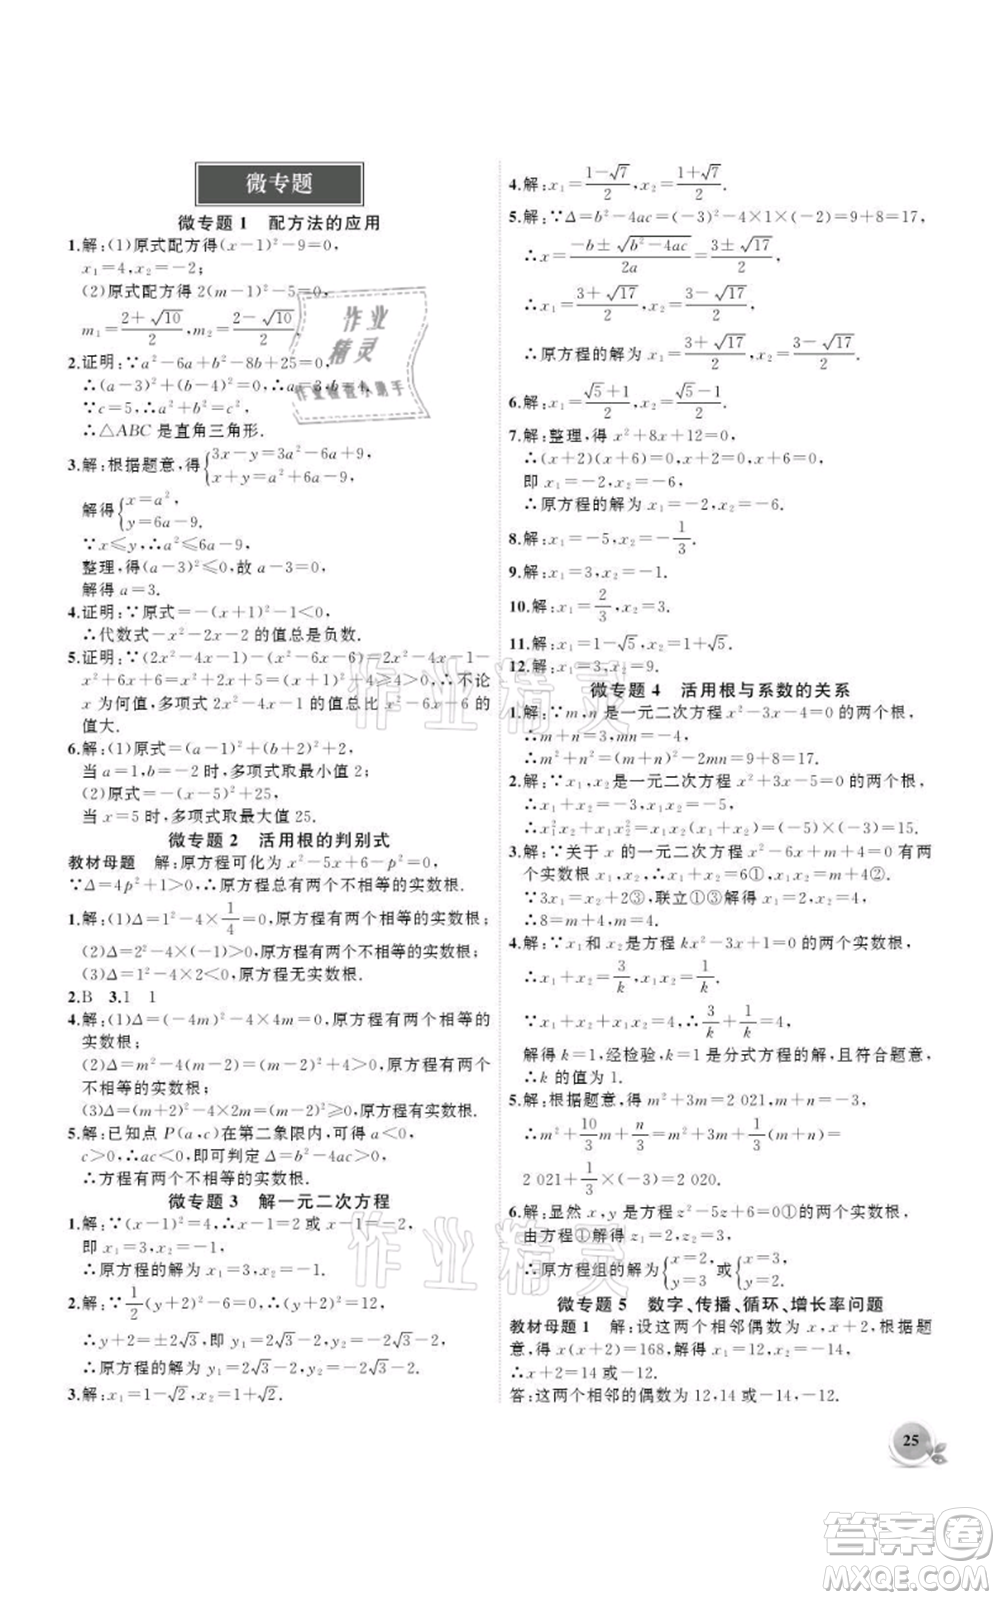 微专题
微专题1 配方法的应用
1.解:(1)原式配方得(x-1)²-9=0,
x₁=4,x₂=-2;
(2)原式配方得2(m-1)²-5=0,
m₁=(2+√10)/2,m₂=(2-√10)/2.
2.证明:∵a²-6a+b²-8b+25=0,
∴(a-3)²+(b-4)²=0,∴a=3,b=4,
∵c=5,∴a²+b²=c²,
∴△ABC是直角三角形.
3.解:根据题意,得{3x-y=3a²-6a+9,
x+y=a²+6a-9,
解得{x=a²,
y=6a-9.
∵x≤y,∴a²≤6a-9,
整理,得(a-3)²≤0,故a-3=0,
解得a=3.
4.证明:∵原式=-(x+1)²-1<0,
∴代数式-x²-2x-2的值总是负数.
5.证明:∵(2x²-4x-1)-(x²-6x-6)=2x²-4x-1-
x²+6x+6=x²+2x+5=(x+1)²+4≥4>0,∴不论
x为何值,多项式2x²-4x-1的值总比x²-6x-6的
值大.
6.解:(1)原式=(a-1)²+(b+2)²+2,
当a=1,b=-2时,多项式取最小值2;
(2)原式=-(x-5)²+25,
当x=5时,多项式取最大值25.
微专题2 活用根的判别式
教材母题 解:原方程可化为x²-5x+6-p²=0,
∵Δ=4p²+1>0,∴原方程总有两个不相等的实数根.
1.解:(1)Δ=1²-4×1/4=0,原方程有两个相等的实数根;
(2)Δ=2²-4×(-1)>0,原方程有两个不相等的实数根;
(3)Δ=(-1)²-4×2<0,原方程无实数根.
2.B 3.1 1
4.解:(1)Δ=(-4m)²-4×4m²=0,原方程有两个相等的
实数根;
(2)Δ=m²-4(m-2)=(m-2)²+4>0,原方程有两个
不相等的实数根;
(3)Δ=(m+2)²-4×2m=(m-2)²≥0,原方程有实数根.
5.解:已知点P(a,c)在第二象限内,可得a<0,
c>0,∴ac<0,即可判定Δ=b²-4ac>0,
∴方程有两个不相等的实数根.
微专题3 解一元二次方程
1.解:∵(x-1)²=4,∴x-1=2或x-1=-2,
即x₁=3,x₂=-1,
∴原方程的解为x₁=3,x₂=-1.
2.解:∵1/2(y+2)²-6=0,∴(y+2)²=12,
∴y+2=±2√3,即y₁=2√3-2,y₂=-2√3-2,
∴原方程的解为y₁=2√3-2,y₂=-2√3-2.
3.解:x₁=1-√2,x₂=1+√2.
4.解:x₁=(1-√7)/2,x₂=(1+√7)/2.
5.解:∵Δ=b²-4ac=(-3)²-4×1×(-2)=9+8=17,
∴x=(-b±√(b²-4ac))/2a=(3±√17)/2,
∴x₁=(3+√17)/2,x₂=(3-√17)/2,
∴原方程的解为x₁=(3+√17)/2,x₂=(3-√17)/2.
6.解:x₁=(√5+1)/2,x₂=(√5-1)/2.
7.解:整理,得x²+8x+12=0,
∴(x+2)(x+6)=0,∴x+2=0,x+6=0,
即x₁=-2,x₂=-6,
∴原方程的解为x₁=-2,x₂=-6.
8.解:x₁=-5,x₂=-1/3.
9.解:x₁=3,x₂=-1.
10.解:x₁=2/3,x₂=3.
11.解:x₁=1-√5,x₂=1+√5.
12.解:x₁=3,x₂=9.
微专题4 活用根与系数的关系
1.解:∵m,n是一元二次方程x²-3x-4=0的两个根,
∴m+n=3,mn=-4,
∴m²+n²=(m+n)²-2mn=9+8=17.
2.解:∵x₁,x₂是一元二次方程x²+3x-5=0的两个根,
∴x₁+x₂=-3,x₁x₂=-5,
∴x₁²x₂+x₁x₂²=x₁x₂(x₁+x₂)=(-5)×(-3)=15.
3.解:∵关于x的一元二次方程x²-6x+m+4=0有两
个实数根x₁,x₂,∴x₁+x₂=6①,x₁x₂=m+4②.
∵3x₁=x₂+2③,联立①③解得x₁=2,x₂=4,
∴8=m+4,∴m=4.
4.解:∵x₁和x₂是方程kx²-3x+1=0的两个实数根,
∴x₁+x₂=3/k,x₁x₂=1/k.
∵x₁+x₂+x₁x₂=4,∴3/k+1/k=4,
解得k=1,经检验,k=1是分式方程的解,且符合题意,
∴k的值为1.
5.解:根据题意,得m²+3m=2 021,m+n=-3,
∴m²+10/3m+1/3n=m²+3m+1/3m+1/3n=m²+3m+1/3(m+n)=
2 021+1/3×(-3)=2 020.
6.解:显然x,y是方程z²-5z+6=0①的两个实数根,
由方程①解得z₁=2,z₂=3,
∴原方程组的解为{x=2,y=3或{x=3,y=2.
微专题5 数字、传播、循环、增长率问题
教材母题1 解:设这两个相邻偶数为x,x+2,根据题
意,得x(x+2)=168,解得x₁=12,x₂=-14,
∴x+2=14或-12.
答:这两个相邻的偶数为12,14或-14,-12.
25
作业
精灵
作业检查小助手
作业精灵
作业精灵
答案卷
MXQE.COM